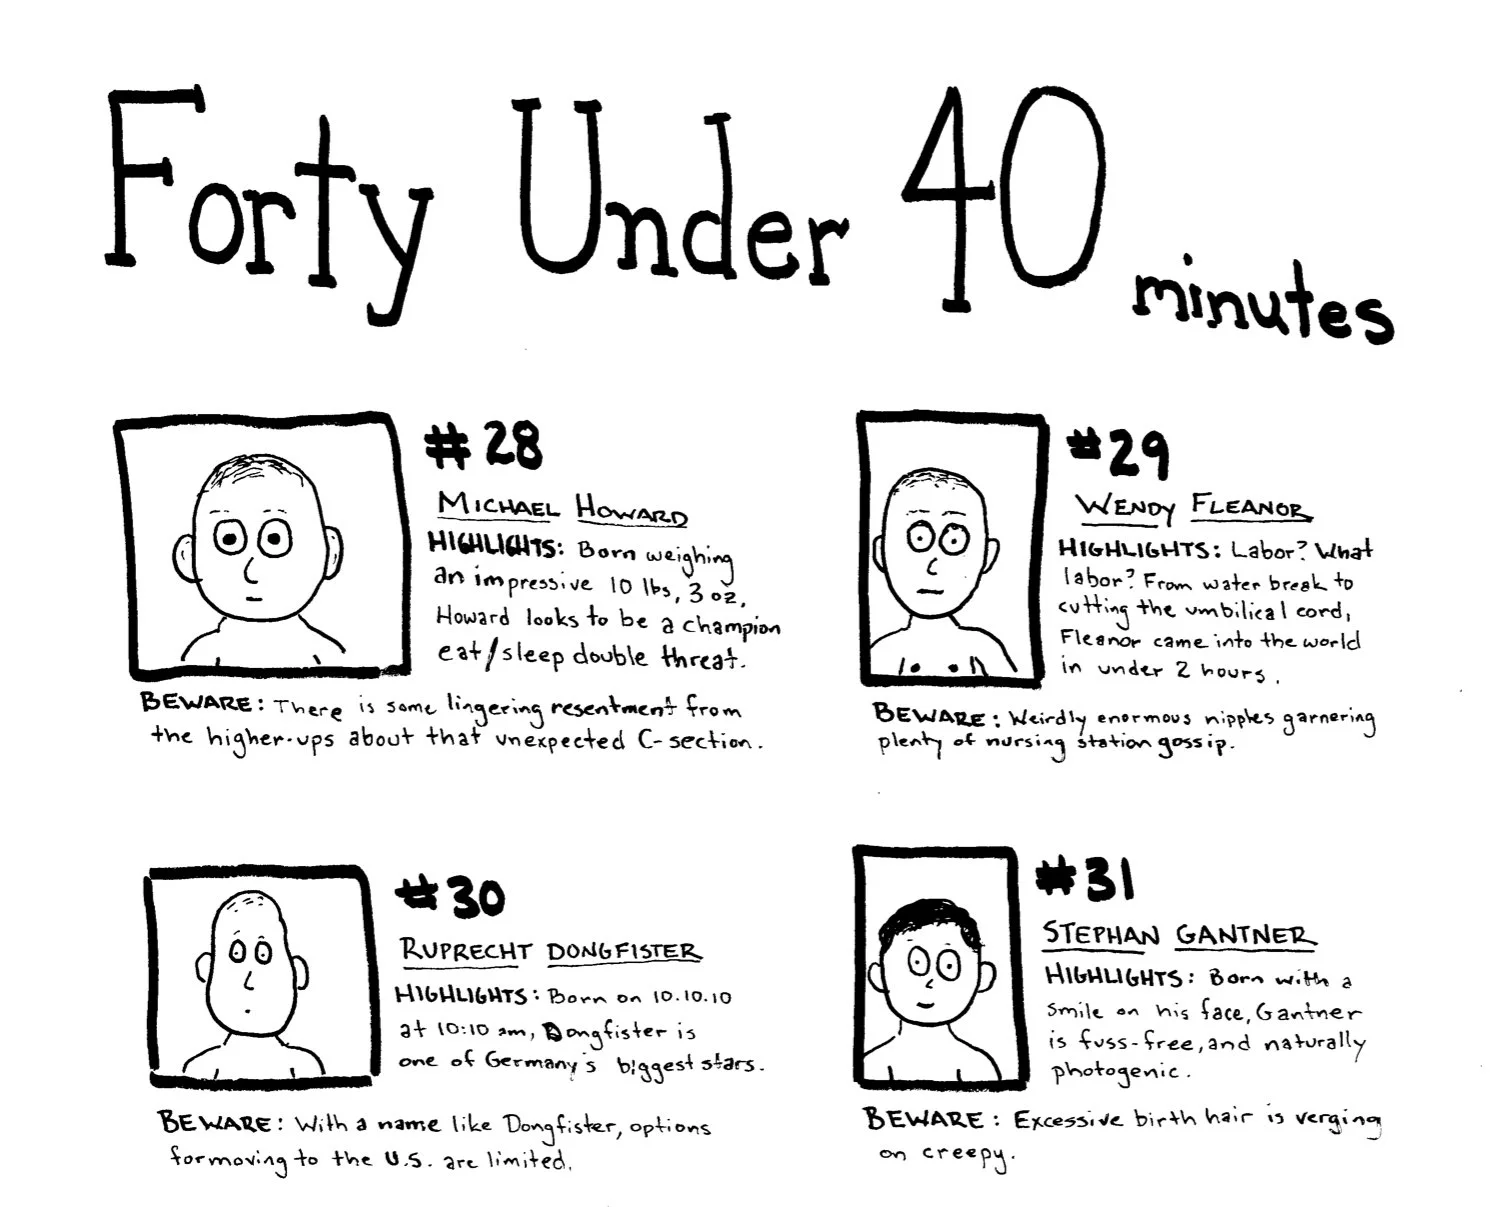 Forty Under 40 minutes
#28
MICHAEL HOWARD
HIGHLIGHTS: Born weighing
an impressive 10 lbs, 3 oz,
Howard looks to be a champion
eat/sleep double threat.
BEWARE: There is some lingering resentment from
the higher-ups about that unexpected C-section.
#29
WENDY FLEANOR
HIGHLIGHTS: Labor? What
labor? From water break to
cutting the umbilical cord,
Fleanor came into the world
in under 2 hours.
BEWARE: Weirdly enormous nipples garnering
plenty of nursing station gossip.
#30
RUPRECHT DONGFISTER
HIGHLIGHTS: Born on 10.10.10
at 10:10 am, Dongfister is
one of Germany's biggest stars.
BEWARE: With a name like Dongfister, options
for moving to the U.S. are limited.
#31
STEPHAN GANTNER
HIGHLIGHTS: Born with a
smile on his face, Gantner
is fuss-free, and naturally
photogenic.
BEWARE: Excessive birth hair is verging
on creepy.